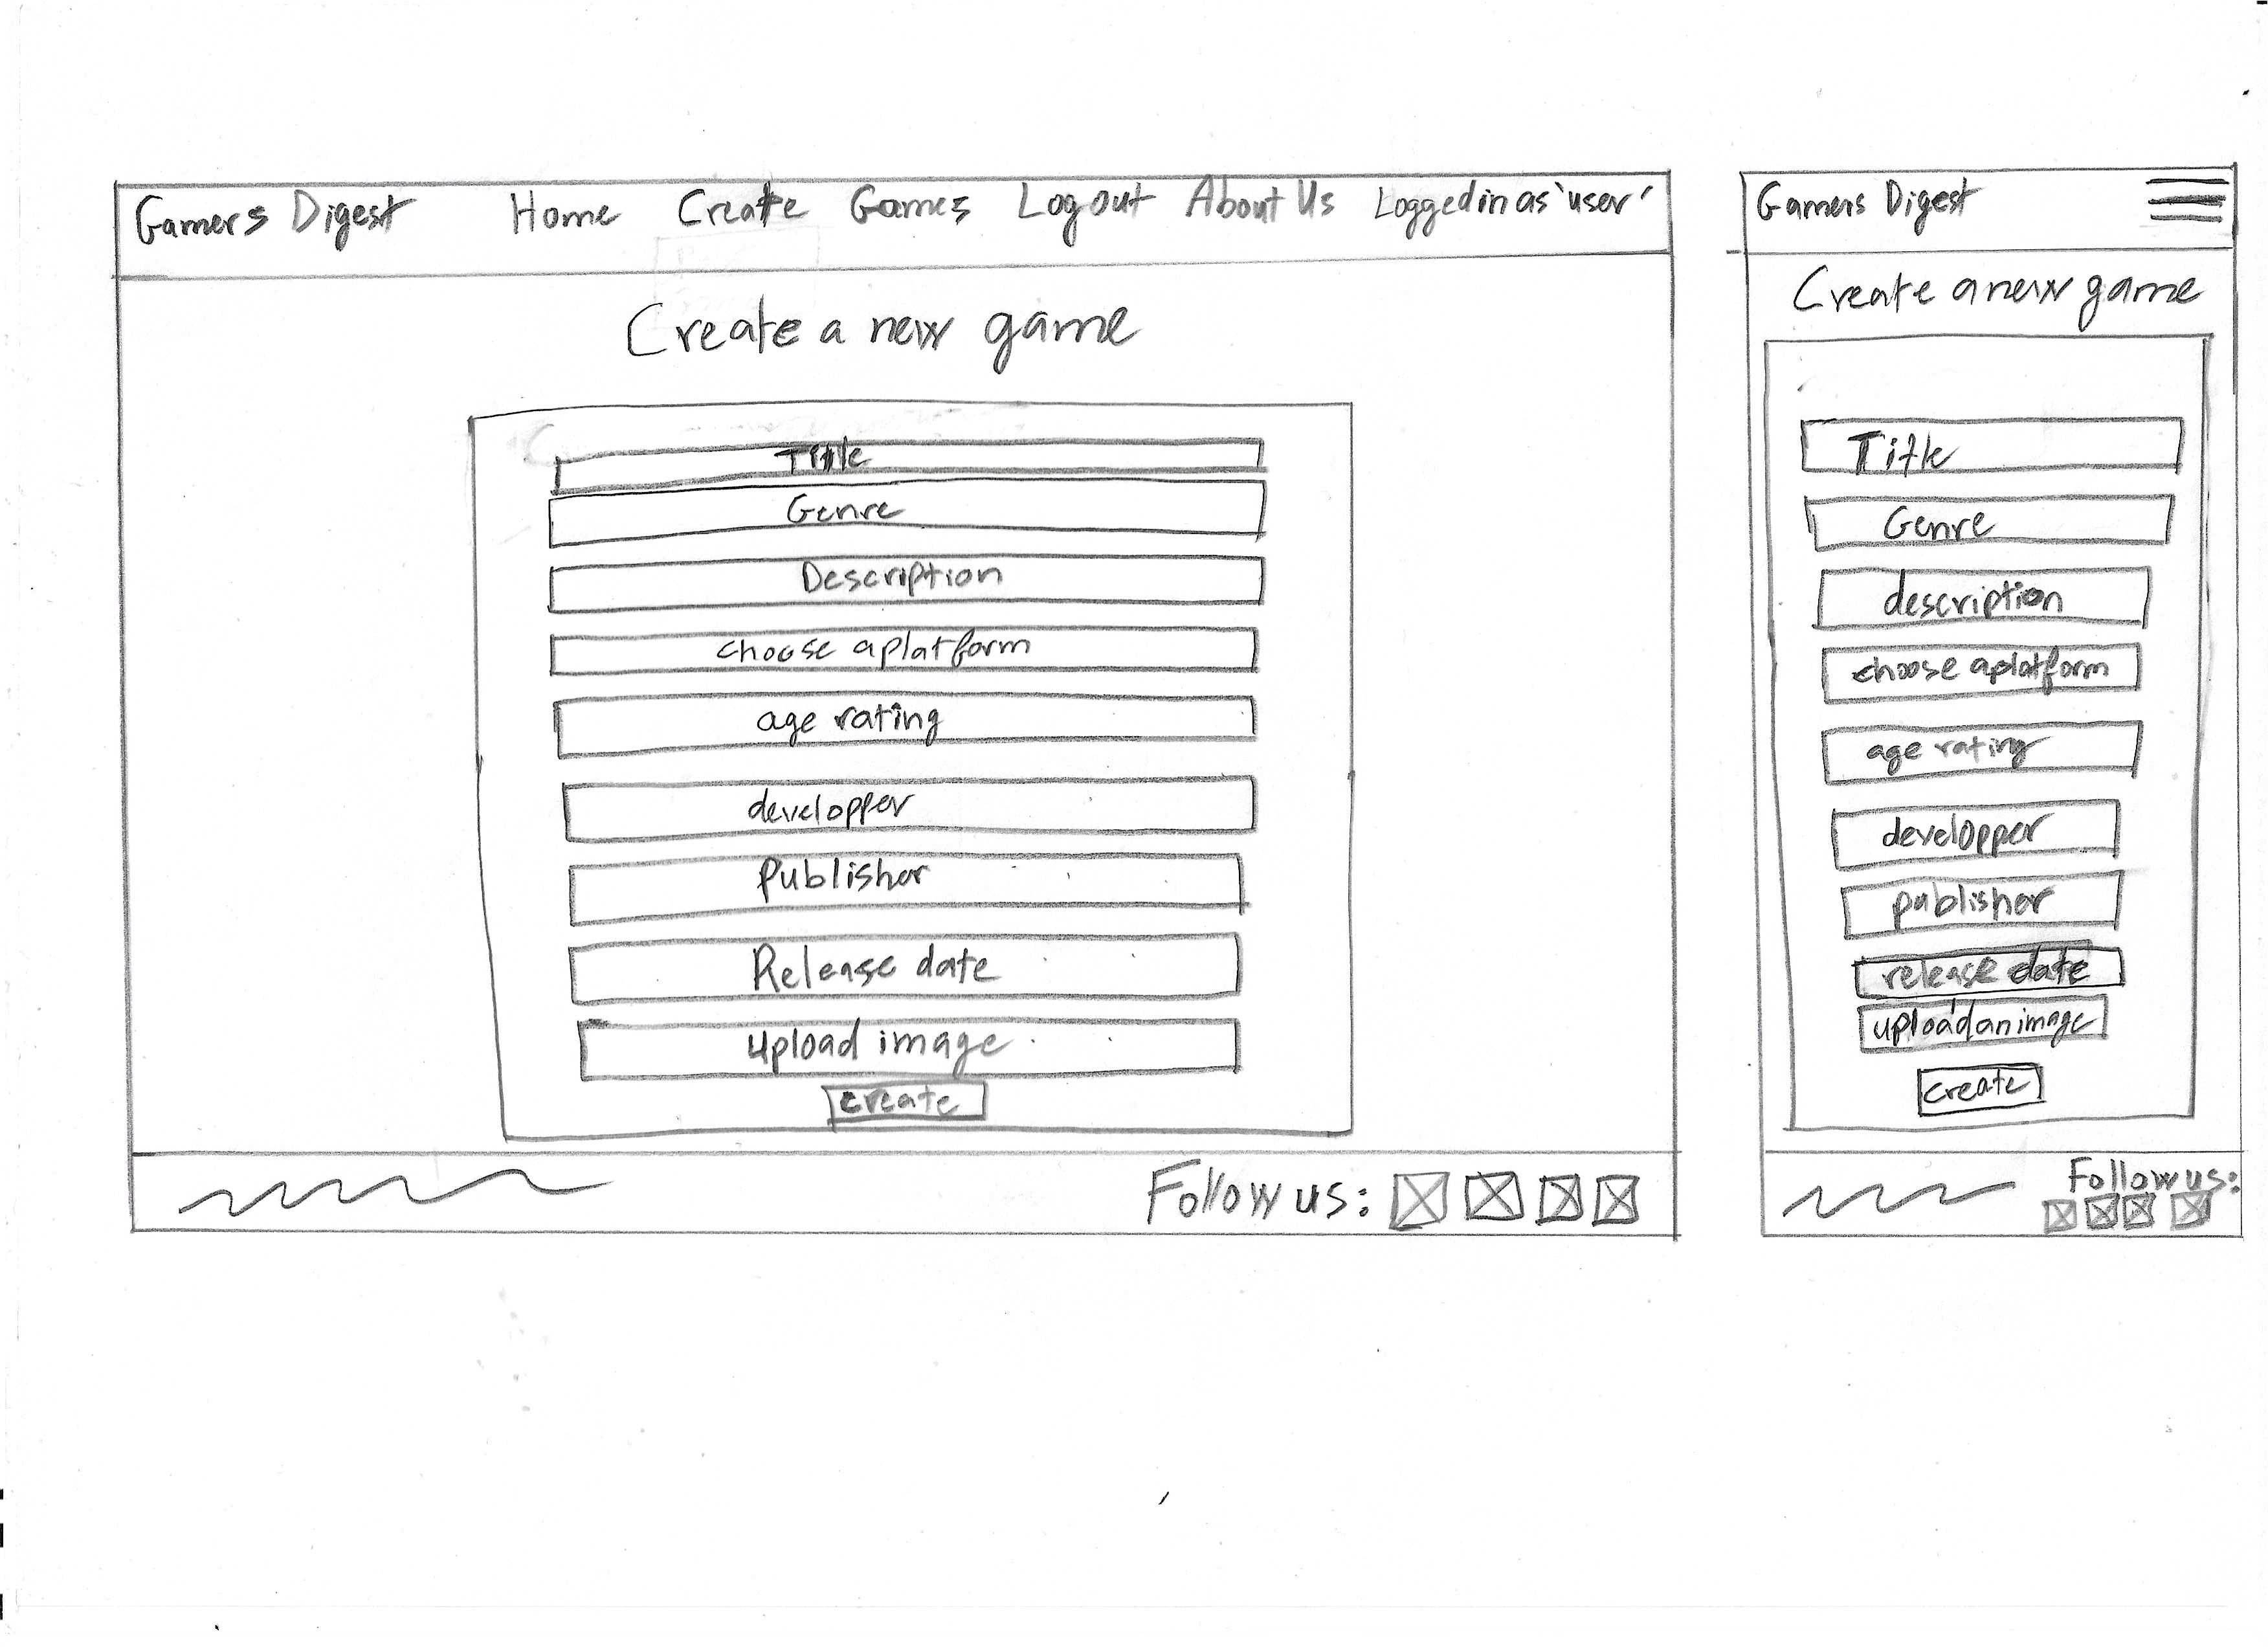 Gamers Digest Home Create Games Logout About Us Logged in as 'user'
Create a new game
Title
Genre
Description
choose a platform
age rating
developper
Publisher
Release date
Upload image
create
Follow us:
Gamers Digest
Create a new game
Title
Genre
description
choose a platform
age rating
developper
publisher
release date
upload an image
create
Follow us: